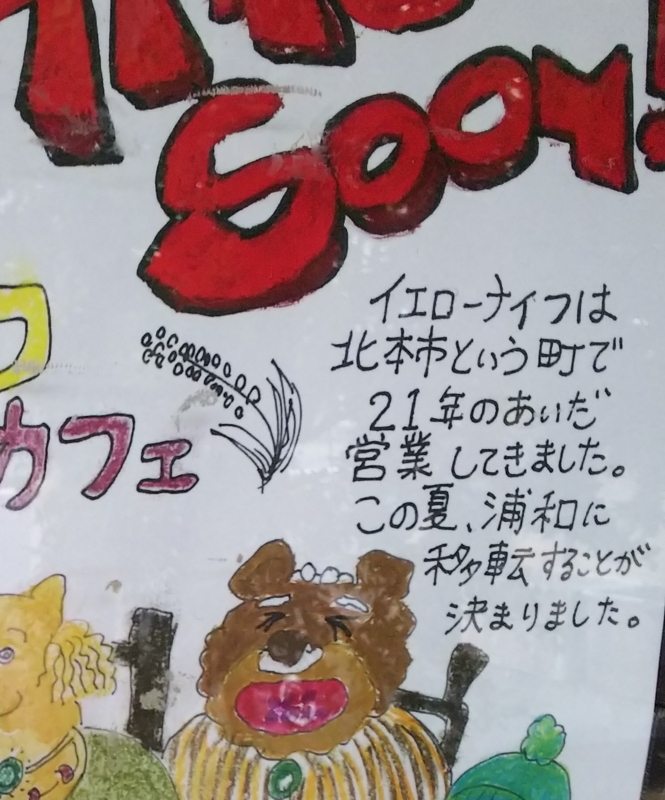 SOON!
イエローナイフは
北本市という町で
21年のあいだ
営業してきました。
この夏、浦和に
移転することが
決まりました。
フ
カフェ